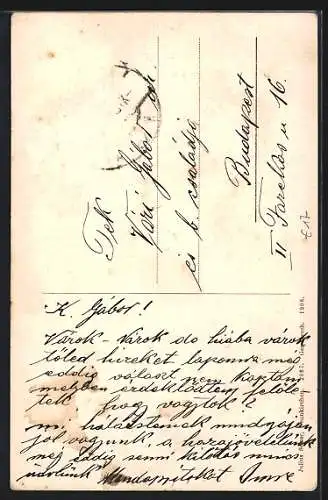 Tek
Vári Gábor úr.
és b. családja
Budapest
II Farekas u 16.
E17
K. Gábor!
Várok - Várok de hiába várok
tőled híreket lapomra még
eddig választ nem kaptam
melyben érdeklődtem felőle-
tek hogy vagytok?
mi hálaistennek mindnyájan
jól vagyunk, a hazajövetelünk
még eddig semmi kilátás nincs
Imre
1908.